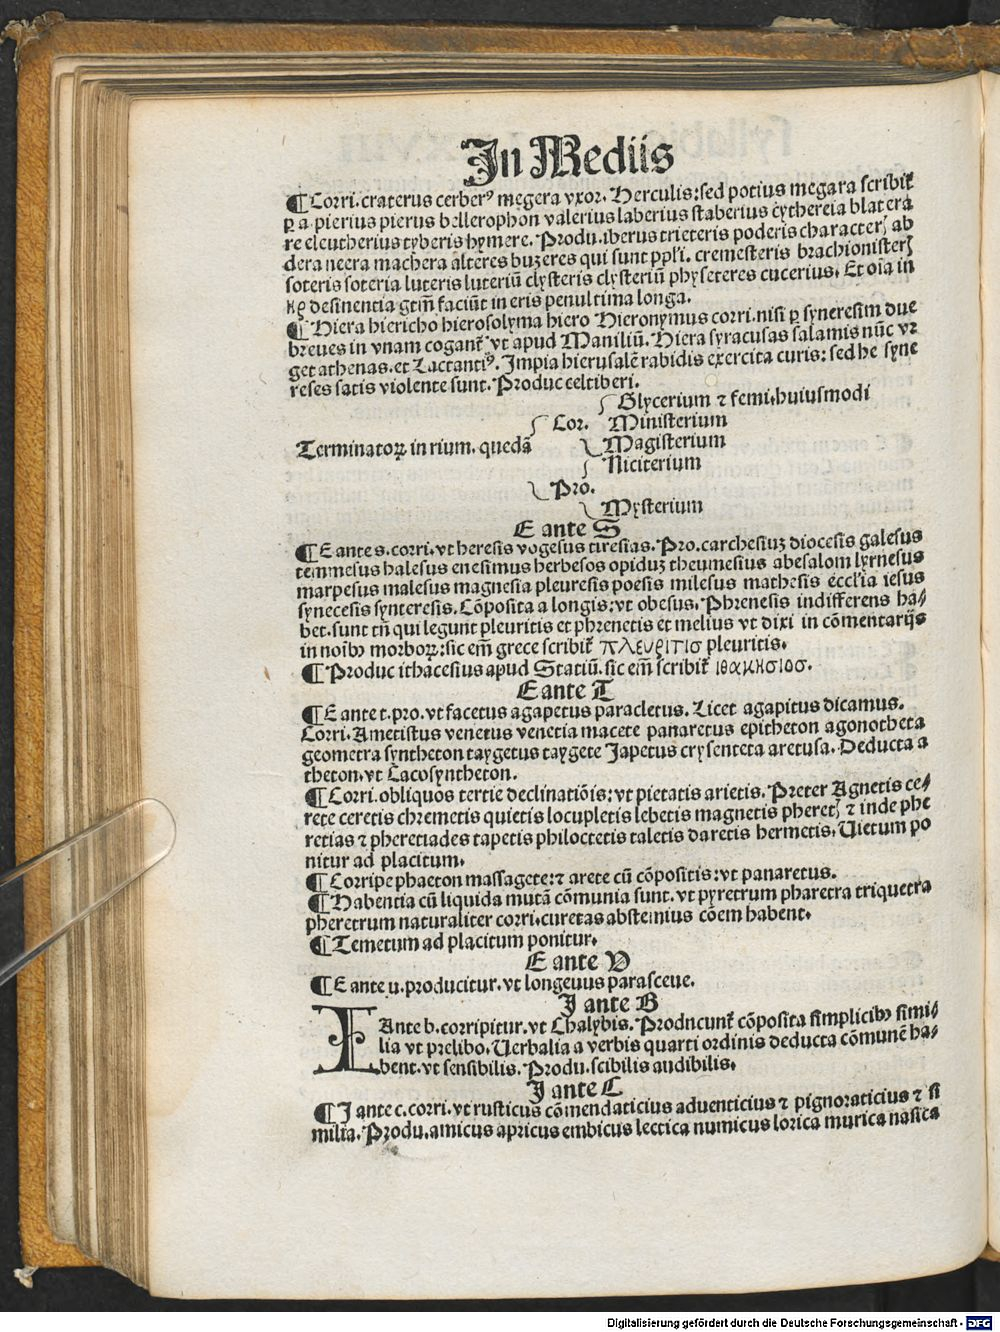 In Mediis
¶Corri. craterus cerberꝰ megera vxor. Herculis: sed potius megara scribit᷑
ꝑ a. pierius pierus bellerophon valerius laberius staberius cythereia blatera
re eleutherius tyberis hymere. Produ. iberus trieteris poderis characterꝫ ab
dera neera machera alteres buzeres qui sunt ppl̃i. cremesteris brachionisterꝫ
soteris soteria luteris luteriũ clysteris clysteriũ physeteres cucerius. Et oĩa in
κρ desinentia gtm̃ faciũt in eris penultima longa.
¶Hiera hiericho hierosolyma hiero Hieronymus corri. nisi ꝑ syneresim due
breues in vnam cogant᷑ vt apud Maniliũ. Hiera syracusas salamis nũc vr
get athenas. et Lactantiꝰ. Impia hierusalẽ rabidis exercita curis: sed he syne
reses satis violente sunt. Produc celtiberi.
Glycerium ⁊ femi. huiusmodi
Cor. Ministerium
Terminatoꝝ in rium. quedã Magisterium
Niciterium
Pro.
Mysterium
E ante S
¶E ante s. corri. vt heresis vogesus tiresias. Pro. carchesiuꝫ diocesis galesus
temmesus halesus enesimus herbesos opiduꝫ theumesius abesalom lyrnesus
marpesus malesus magnesia pleuresis poesis milesus mathesis eccl̃ia iesus
synecesis synteresis. Cõposita a longis: vt obesus. Phrenesis indifferens ha⸗
bet. sunt tñ qui legunt pleuritis et phrenetis et melius vt dixi in cõmentarijs
in noĩbꝰ morboꝝ: sic em̃ grece scribit᷑ πλευριτισ pleuritis.
¶Produc ithacesius apud Statiũ. sic em̃ scribit᷑ ιθακησιοσ.
E ante T
¶E ante t. pro. vt facetus agapetus paracletus. Licet agapitus dicamus.
Corri. Ametistus venetus venetia macete panaretus epitheton agonotheta
geometra syntheton taygetus taygete Japetus crysenteta aretusa. Deducta a
theton. vt Cacosyntheton.
¶Corri. obliquos tertie declinatiõis: vt pietatis arietis. Preter Agnetis ce⸗
rete ceretis chremetis quietis locupletis lebetis magnetis pheretꝫ ⁊ inde phe
retias ⁊ pheretiades tapetis philoctetis taletis daretis hermetis. Vietum po
nitur ad placitum.
¶Corripe phaeton massagete: ⁊ arete cũ cõpositis: vt panaretus.
¶Habentia cũ liquida mutã cõmunia sunt. vt pyretrum pharetra triquetra
pheretrum naturaliter corri. curetas abstemius cõem habent.
¶Temetum ad placitum ponitur.
E ante V
¶E ante u. producitur. vt longeuus parasceue.
I ante B
I Ante b. corripitur. vt Chalybis. Producunt᷑ cõposita simplicibꝰ simi⸗
lia vt prelibo. Verbalia a verbis quarti ordinis deducta cõmunẽ ha⸗
bent. vt sensibilis. Produ. scibilis audibilis.
I ante C
¶I ante c. corri. vt rusticus cõmendaticius aduenticius ⁊ pignoraticius ⁊ si
milia. Produ. amicus apricus embicus lectica numicus lorica murica nasica
Digitalisierung gefördert durch die Deutsche Forschungsgemeinschaft - DFG